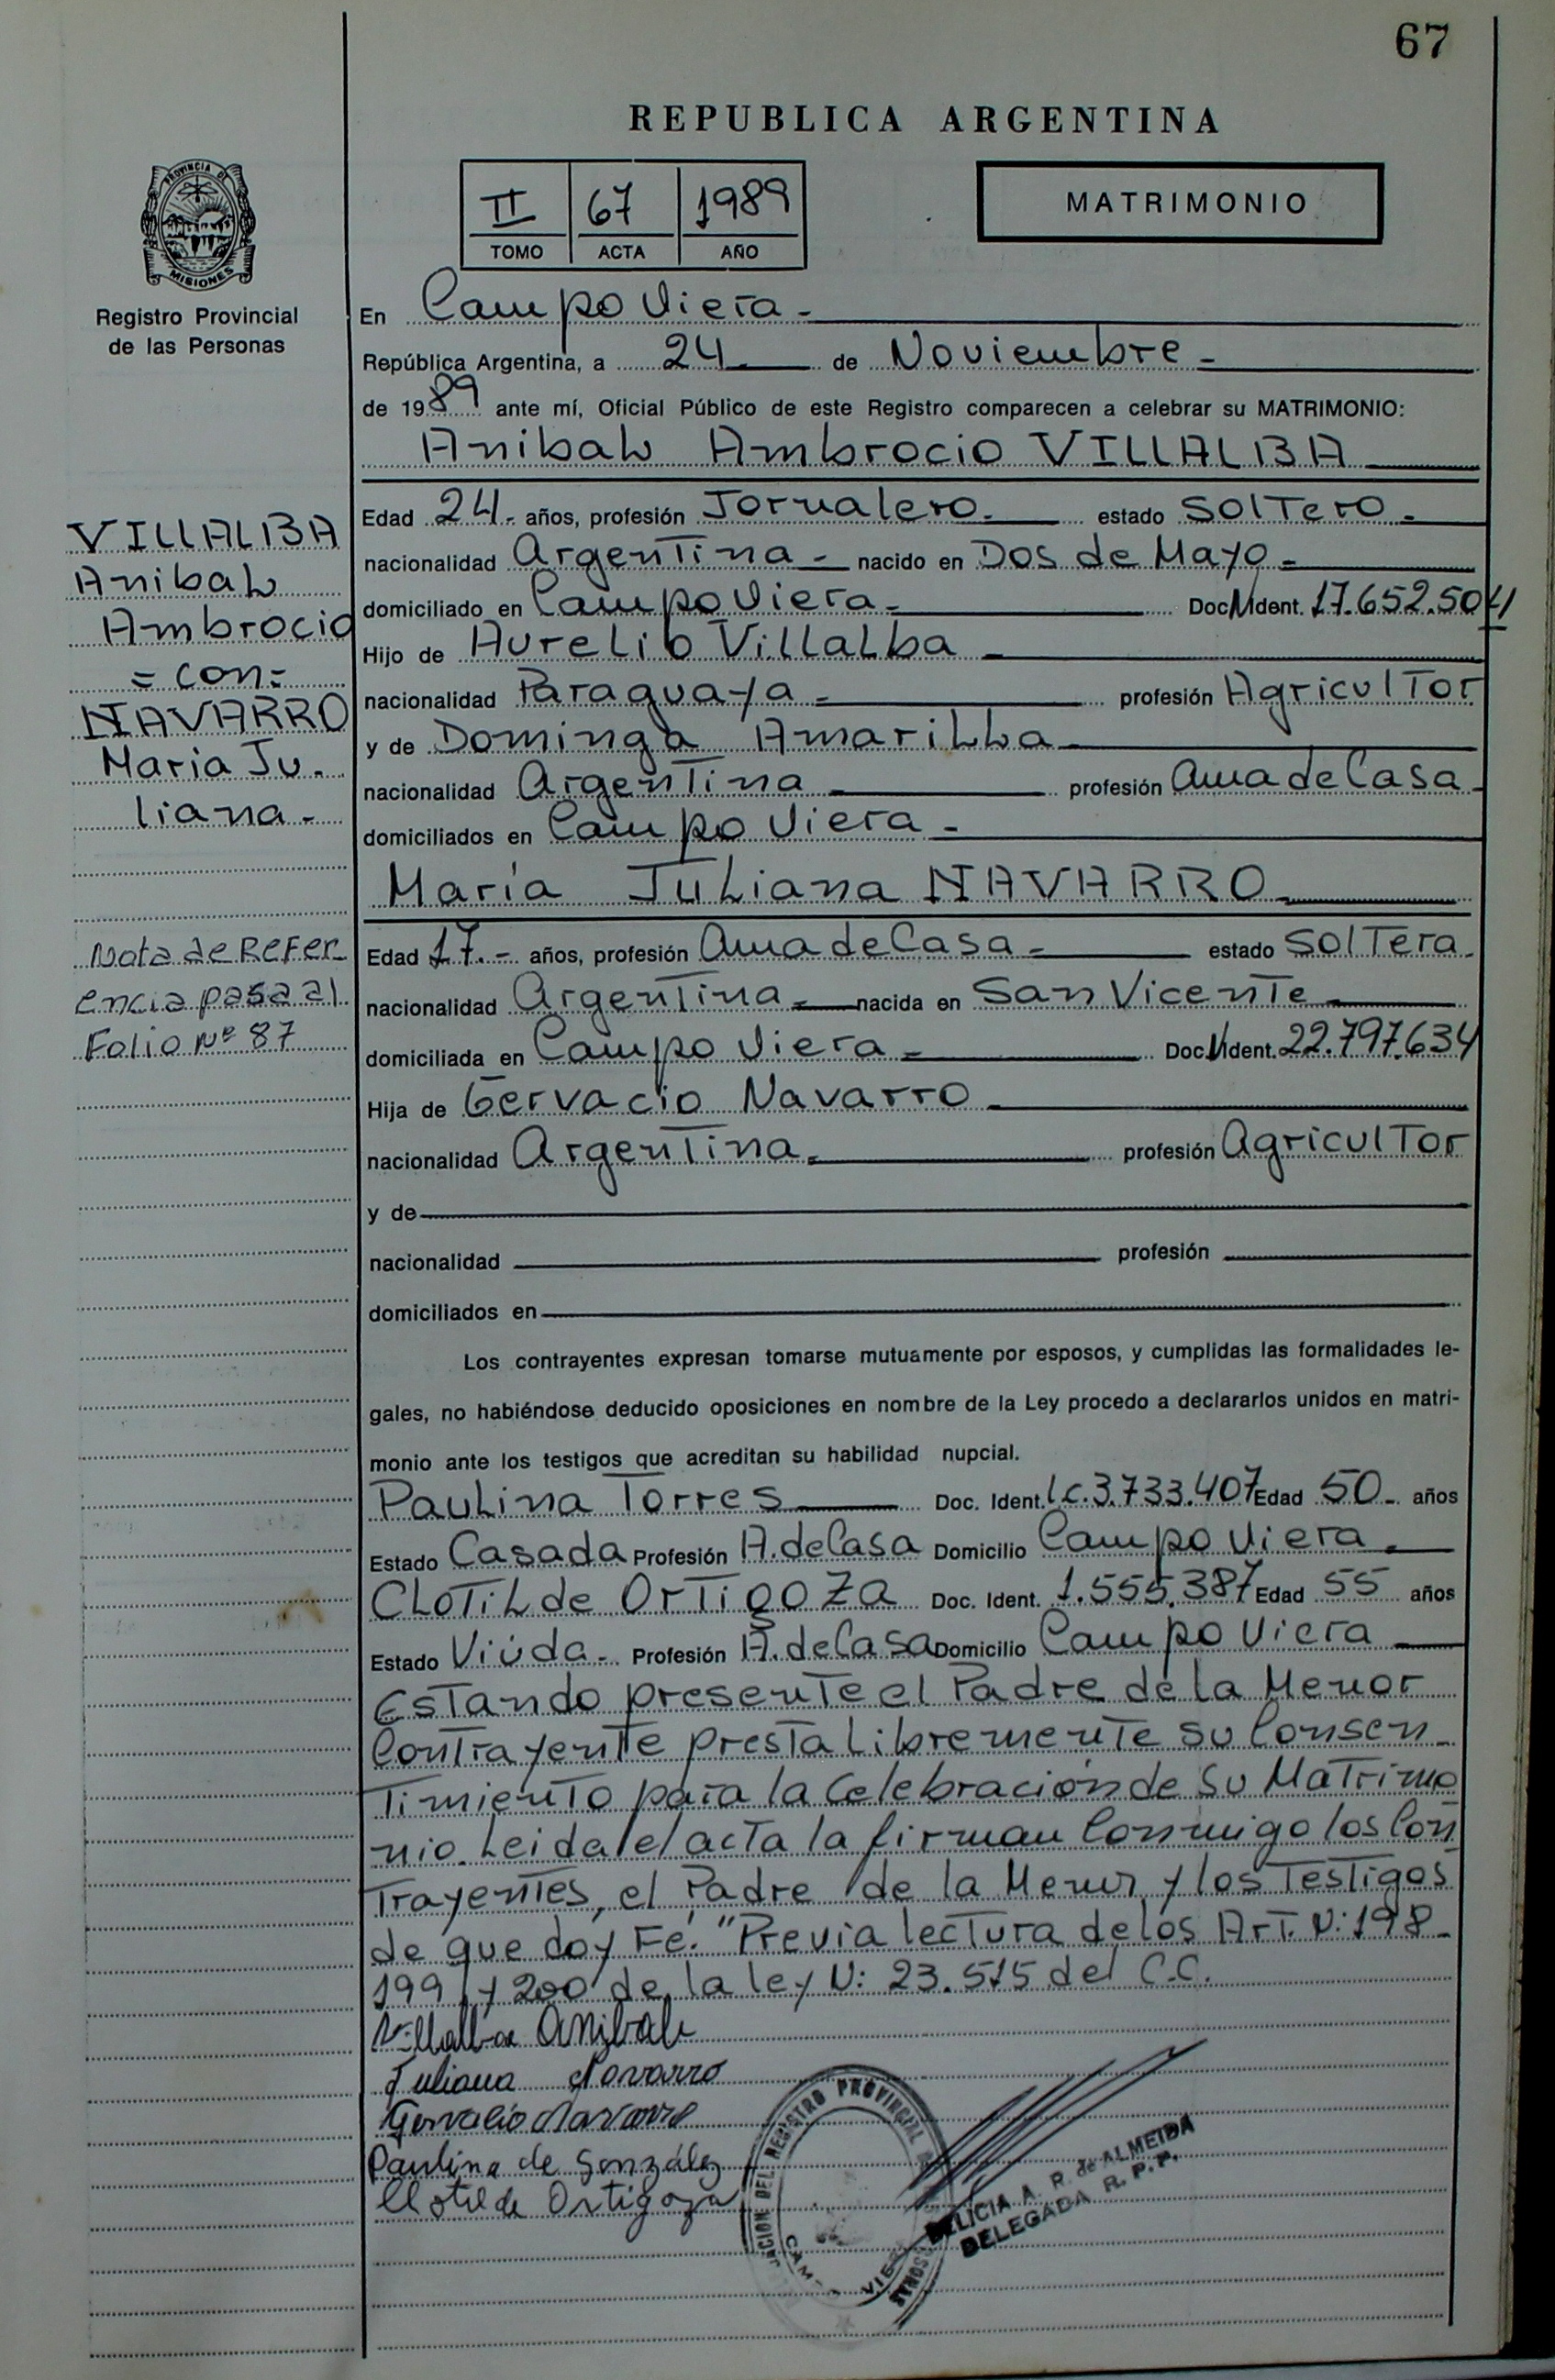 67
REPUBLICA ARGENTINA
II 67 1989
TOMO ACTA AÑO
MATRIMONIO
PROVINCIA DE
MISIONES
Registro Provincial
de las Personas
En Campo Viera.-
República Argentina, a 24 de Noviembre.-
de 1989 ante mí, Oficial Público de este Registro comparecen a celebrar su MATRIMONIO:
Anibal Ambrocio VILLALBA
VILLALBA
Anibal
Ambrocio
= con =
NAVARRO
Maria Ju-
liana.-
Nota de Refer
encia pasa al
Folio Nº 87
Edad 24.- años, profesión Jornalero.- estado SolTero.-
nacionalidad Argentina.- nacido en Dos de Mayo.-
domiciliado en Campo Viera.- Doc.N.Ident. 17.652.504
Hijo de Aurelio Villalba.-
nacionalidad Paraguaya.- profesión Agricultor
y de Dominga Amarilla.-
nacionalidad Argentina profesión Ama de Casa.-
domiciliados en Campo Viera.-
María Juliana NAVARRO.-
Edad 17.- años, profesión Ama de Casa.- estado Soltera.
nacionalidad Argentina.- nacida en San Vicente
domiciliada en Campo Viera.- Doc.N.Ident. 22.797.634
Hija de Gervacio Navarro
nacionalidad Argentina.- profesión Agricultor
y de
nacionalidad profesión
domiciliados en
Los contrayentes expresan tomarse mutuamente por esposos, y cumplidas las formalidades le-
gales, no habiéndose deducido oposiciones en nombre de la Ley procedo a declararlos unidos en matri-
monio ante los testigos que acreditan su habilidad nupcial.
Paulina Torres Doc. Ident. l.c.3.733.407 Edad 50- años
Estado Casada Profesión A.deCasa Domicilio Campo Viera.
Clotilde Ortigoza Doc. Ident. 1.555.387 Edad 55 años
Estado Viúda.- Profesión A.deCasa Domicilio Campo Viera
Estando presente el Padre de la Menor
Contrayente presta Libremente su Consen-
timiento para la Celebración de su Matrimo
nio. Leida el acta la firman Conmigo los Con
trayentes, el Padre de la Menor y los Testigos
de que doy Fé. "Previa lectura de los Art. N: 198-
199 y 200 de la ley N: 23.515 del C.C.
Villalba Anibal
Juliana Navarro
Gervacio Navarro
Paulina de González
Clotilde Ortigoza
DEL REGISTRO PROVINCIAL
DELICIA A. R. de ALMEIDA
DELEGADA R. P. P.